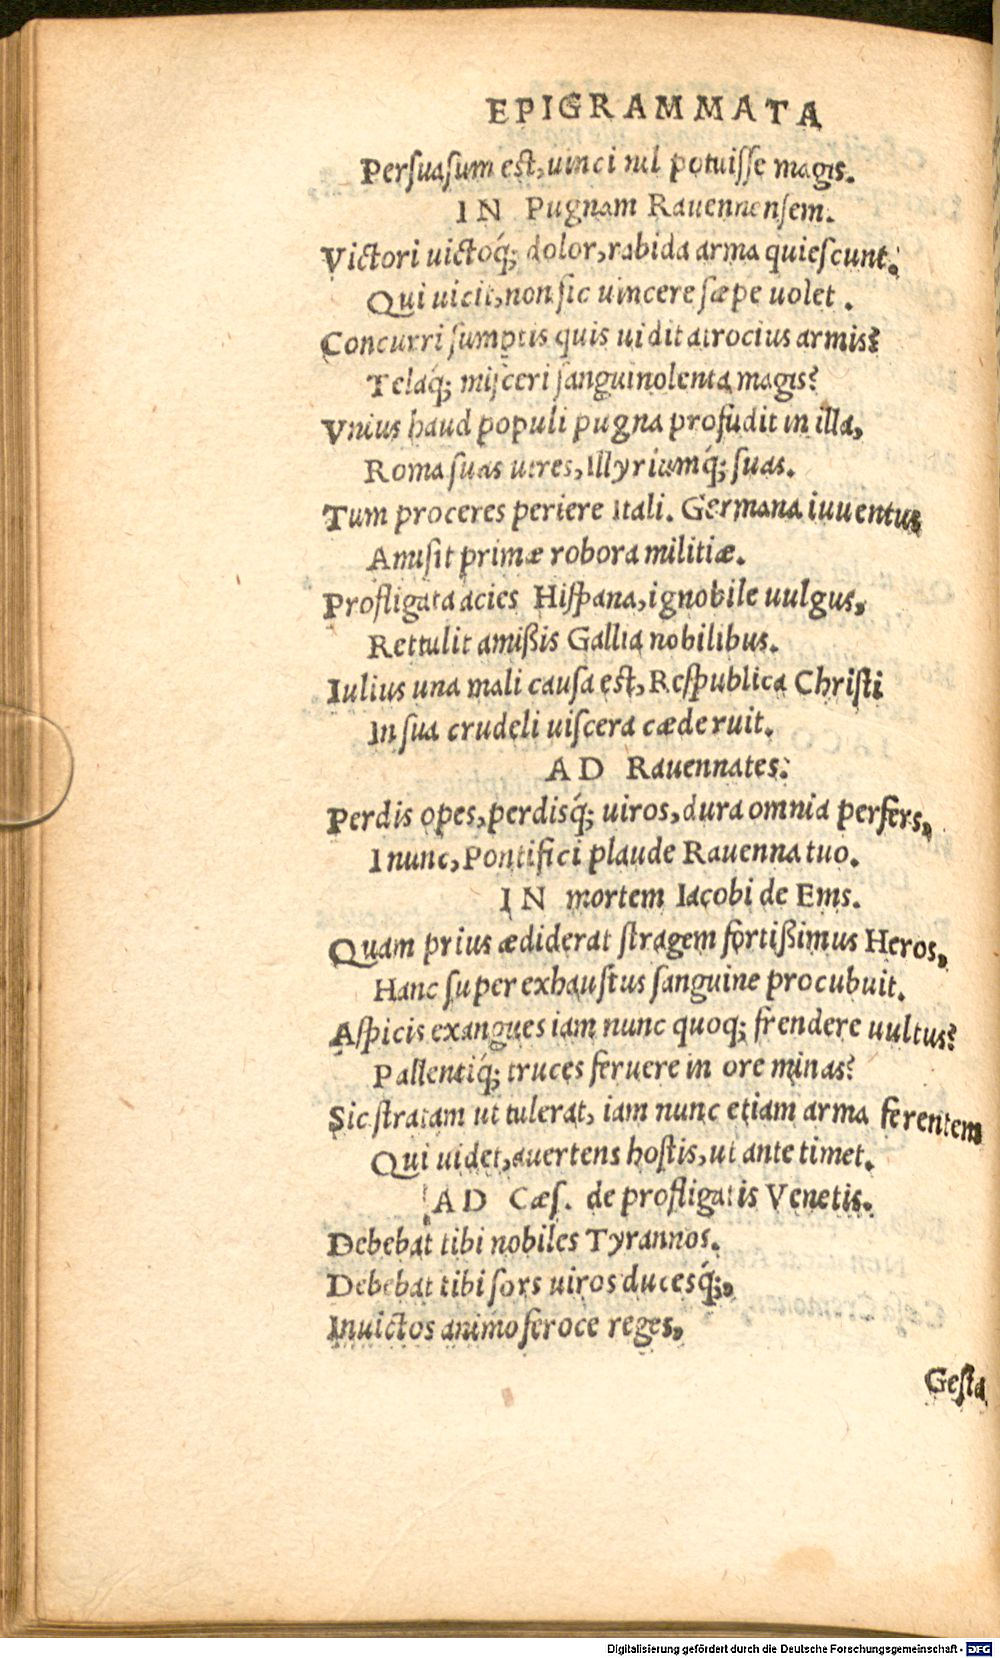 EPIGRAMMATA
Persuasum est, uinci nil potuisse magis.
IN Pugnam Rauennensem.
Victori uictoq́; dolor, rabida arma quiescunt.
Qui uicit, non sic uincere sæpe uolet.
Concurri sumptis quis uidit atrocius armis?
Telaq́; misceri sanguinolenta magis?
Vnius haud populi pugna profudit in illa,
Roma suas uires, Illyriumq́; suas.
Tum proceres periere Itali. Germana iuuentus
Amisit primæ robora militiæ.
Profligata acies Hispana, ignobile uulgus,
Rettulit amißis Gallia nobilibus.
Iulius una mali causa est, Respublica Christi
In sua crudeli uiscera cæde ruit.
AD Rauennates:
Perdis opes, perdisq́; uiros, dura omnia perfers,
I nunc, Pontifici plaude Rauenna tuo.
IN mortem Iacobi de Ems.
Quam prius ædiderat stragem fortißimus Heros,
Hanc super exhaustus sanguine procubuit.
Aspicis exangues iam nunc quoq; frendere uultus?
Pallentiq́; truces feruere in ore minas?
Sic stratam ut tulerat, iam nunc etiam arma ferentem
Qui uidet, auertens hostis, ut ante timet.
AD Cæs. de profligatis Venetis.
Debebat tibi nobiles Tyrannos.
Debebat tibi sors uiros ducesq́;,
Inuictos animo feroce reges,
Gesta
Digitalisierung gefördert durch die Deutsche Forschungsgemeinschaft - DFG